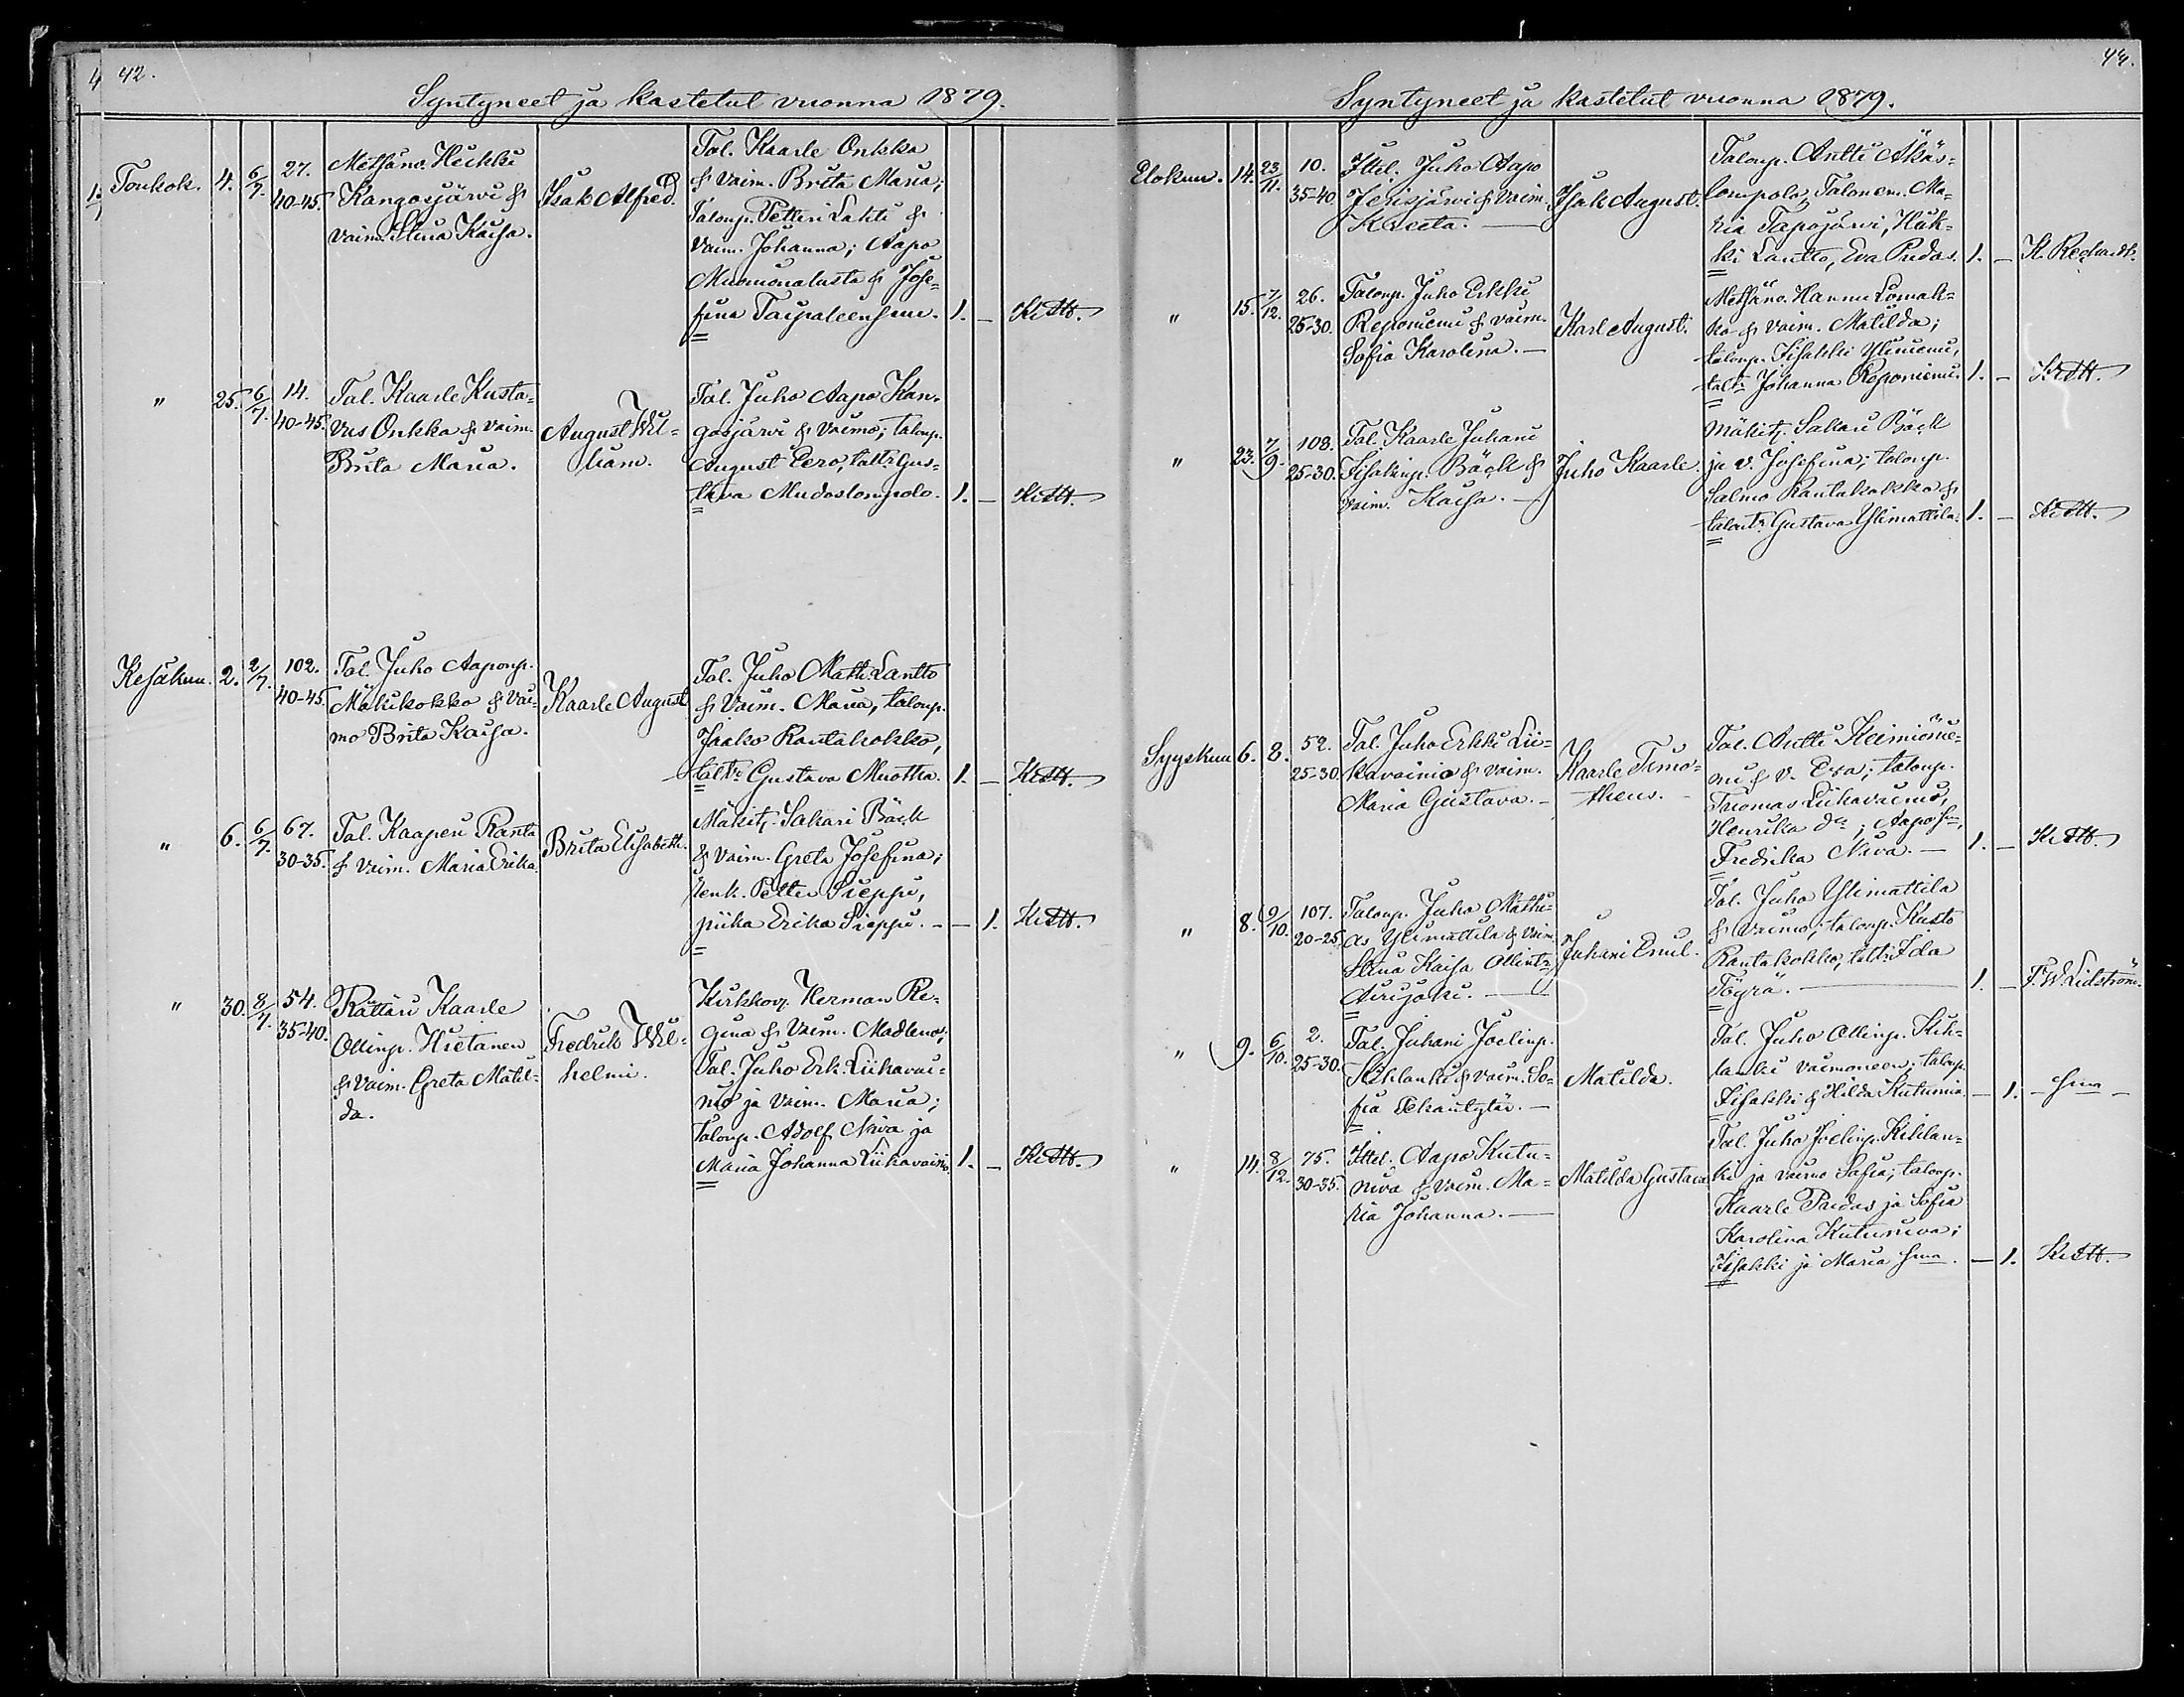 42.
Syntyneet ja kastetut vuonna 1879.
Toukok. 4. 6/7. 27. 40-45.
Metsäno. Heikki
Kangosjärvi &
vaim. Stina Kaisa.
Isak Alfred.
Tal. Kaarle Onkka
& vaim. Brita Maria;
Taloup. Petteri Lahti &
vaim. Johanna; Aapo
Muonionalusta & Jose=
fina Taipaleensuu. 1. —
" 25. 6/7. 14. 40-45.
Tal. Kaarle Kusta=
vus Onkka & vaim.
Brita Maria.
August Wil=
liam.
Tal. Juho Aapo Kan=
gosjärvi & vaimo; taloup.
August Eero, taltr Gus=
tava Mudoslompolo. 1. —
Kesäkuu. 2. 2/7. 102. 40-45.
Tal. Juho Aaponp.
Mäkikokko & vai=
mo Brita Kaisa.
Kaarle August
Tal. Juho Matti Lantto
& vaim. Maria, taloup.
Jaako Rantakokko,
taltr Gustava Muotka. 1. —
" 6. 6/7. 67. 30-35.
Tal. Kaaperi Ranta
& vaim. Maria Erika.
Brita Elisabeth.
Mäkit. Sakari Bäck
& vaim. Greta Josefina;
renk. Petter Sieppi,
piika Erika Sieppi. — 1.
" 30. 8/7. 54. 35-40.
Rättäri Kaarle
Ollinp. Hietanen
& vaim. Greta Matil=
da.
Fredrik Wil=
helmi.
Kirkkov. Herman Re=
gina & vaim. Madlena;
Tal. Juho Erk. Liikavai=
nio ja vaim. Maria;
Taloup. Adolf Niva ja
Maria Johanna Liikavainio. 1. —
44.
Syntyneet ja kastetut vuonna 1879.
Elokuu. 14. 23/11. 10. 35-40.
Ittel. Juho Aapo
Jerisjärvi & vaim.
Kreeta. —
Isak August.
Taloup. Antti Äkäs=
lompolo, Talonem. Ma=
ria Tapojärvi, Heik=
ki Lantto, Eva Pudas. 1. —
" 15. 7/12. 26. 25-30.
Taloup. Juho Erkki
Reponiemi & vaim.
Sofia Karolina. —
Karl August.
Metsäno. Hannu Lomak=
ko & vaim. Matilda;
taloup. Iisakki Yliniemi,
taltr Johanna Reponiemi. 1. —
" 23. 7/9. 108. 25-30.
Tal. Kaarle Juhani
Iisakinp. Bäck &
vaim. Kaisa. —
Juho Kaarle.
Mäkit. Sakari Bäck
ja v. Josefina; taloup.
Salmo Rantakokko &
talontr Gustava Ylimattila. 1. —
Syyskuu 6. 8. 52. 25-30.
Tal. Juho Erkki Lii=
kavainio & vaim.
Maria Gustava. —
Kaarle Timo=
theus.
Tal. Antti Keimiönie=
mi & v. Eva; taloup.
Tuomas Liikavainio,
Henrika dr; Aapo
Fredrika Niva. — 1. —
" 8. 9/10. 107. 20-25.
Taloup. Juho Mathi=
as Ylimattila & vaim.
Stina Kaisa Ollintr
Airijoki. —
Juhani Emil.
Tal. Juho Ylimattila
& vaimo; taloup. Kusto
Rantakokko, taltr Ida
Töyrä. — 1. — F. W. Lidström.
" 9. 6/10. 2. 25-30.
Tal. Juhani Joelinp.
Kihlanki & vaim. So=
fia —
Matilda.
Tal. Juho Ollinp. Kih=
lanki vaimoneen; taloup.
Iisakki & Hilda Kutuniva. — 1.
" 14. 8/12. 75. 30-35.
Ittel. Aapo Kutu=
niva & vaim. Ma=
ria Johanna. —
Matilda Gustava
Tal. Juho Joelinp. Kihlan=
ki ja vaimo Sofia; taloup.
Kaarle Pudas ja Sofia
Karolina Kutuniva;
Iisakki ja Maria — 1.